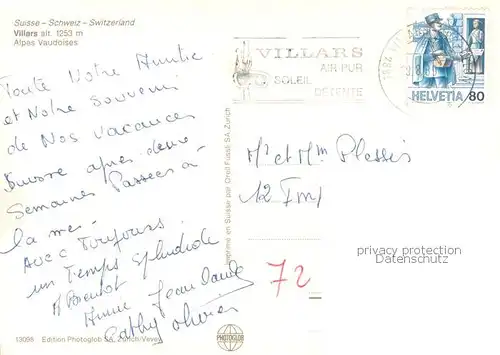 Suisse – Schweiz – Switzerland
Villars alt. 1253 m
Alpes Vaudoises
Toute Notre Amitié
et Notre Souvenir
de Nos vacances
Suisse après deux
Semaines Passées à
la mer
Avec Toujours
un Temps Splendide
A Bientot
Annie Jean Claude
Cathy Olivier
13098 Edition Photoglob SA, Zürich/Vevey
PHOTOGLOB
Imprimé en Suisse par Orell Füssli SA Zürich
VILLARS
AIR PUR
SOLEIL
DÉTENTE
1884 VILLARS
HELVETIA 80
Mr et Mm Plessis
72
privacy protection
Datenschutz